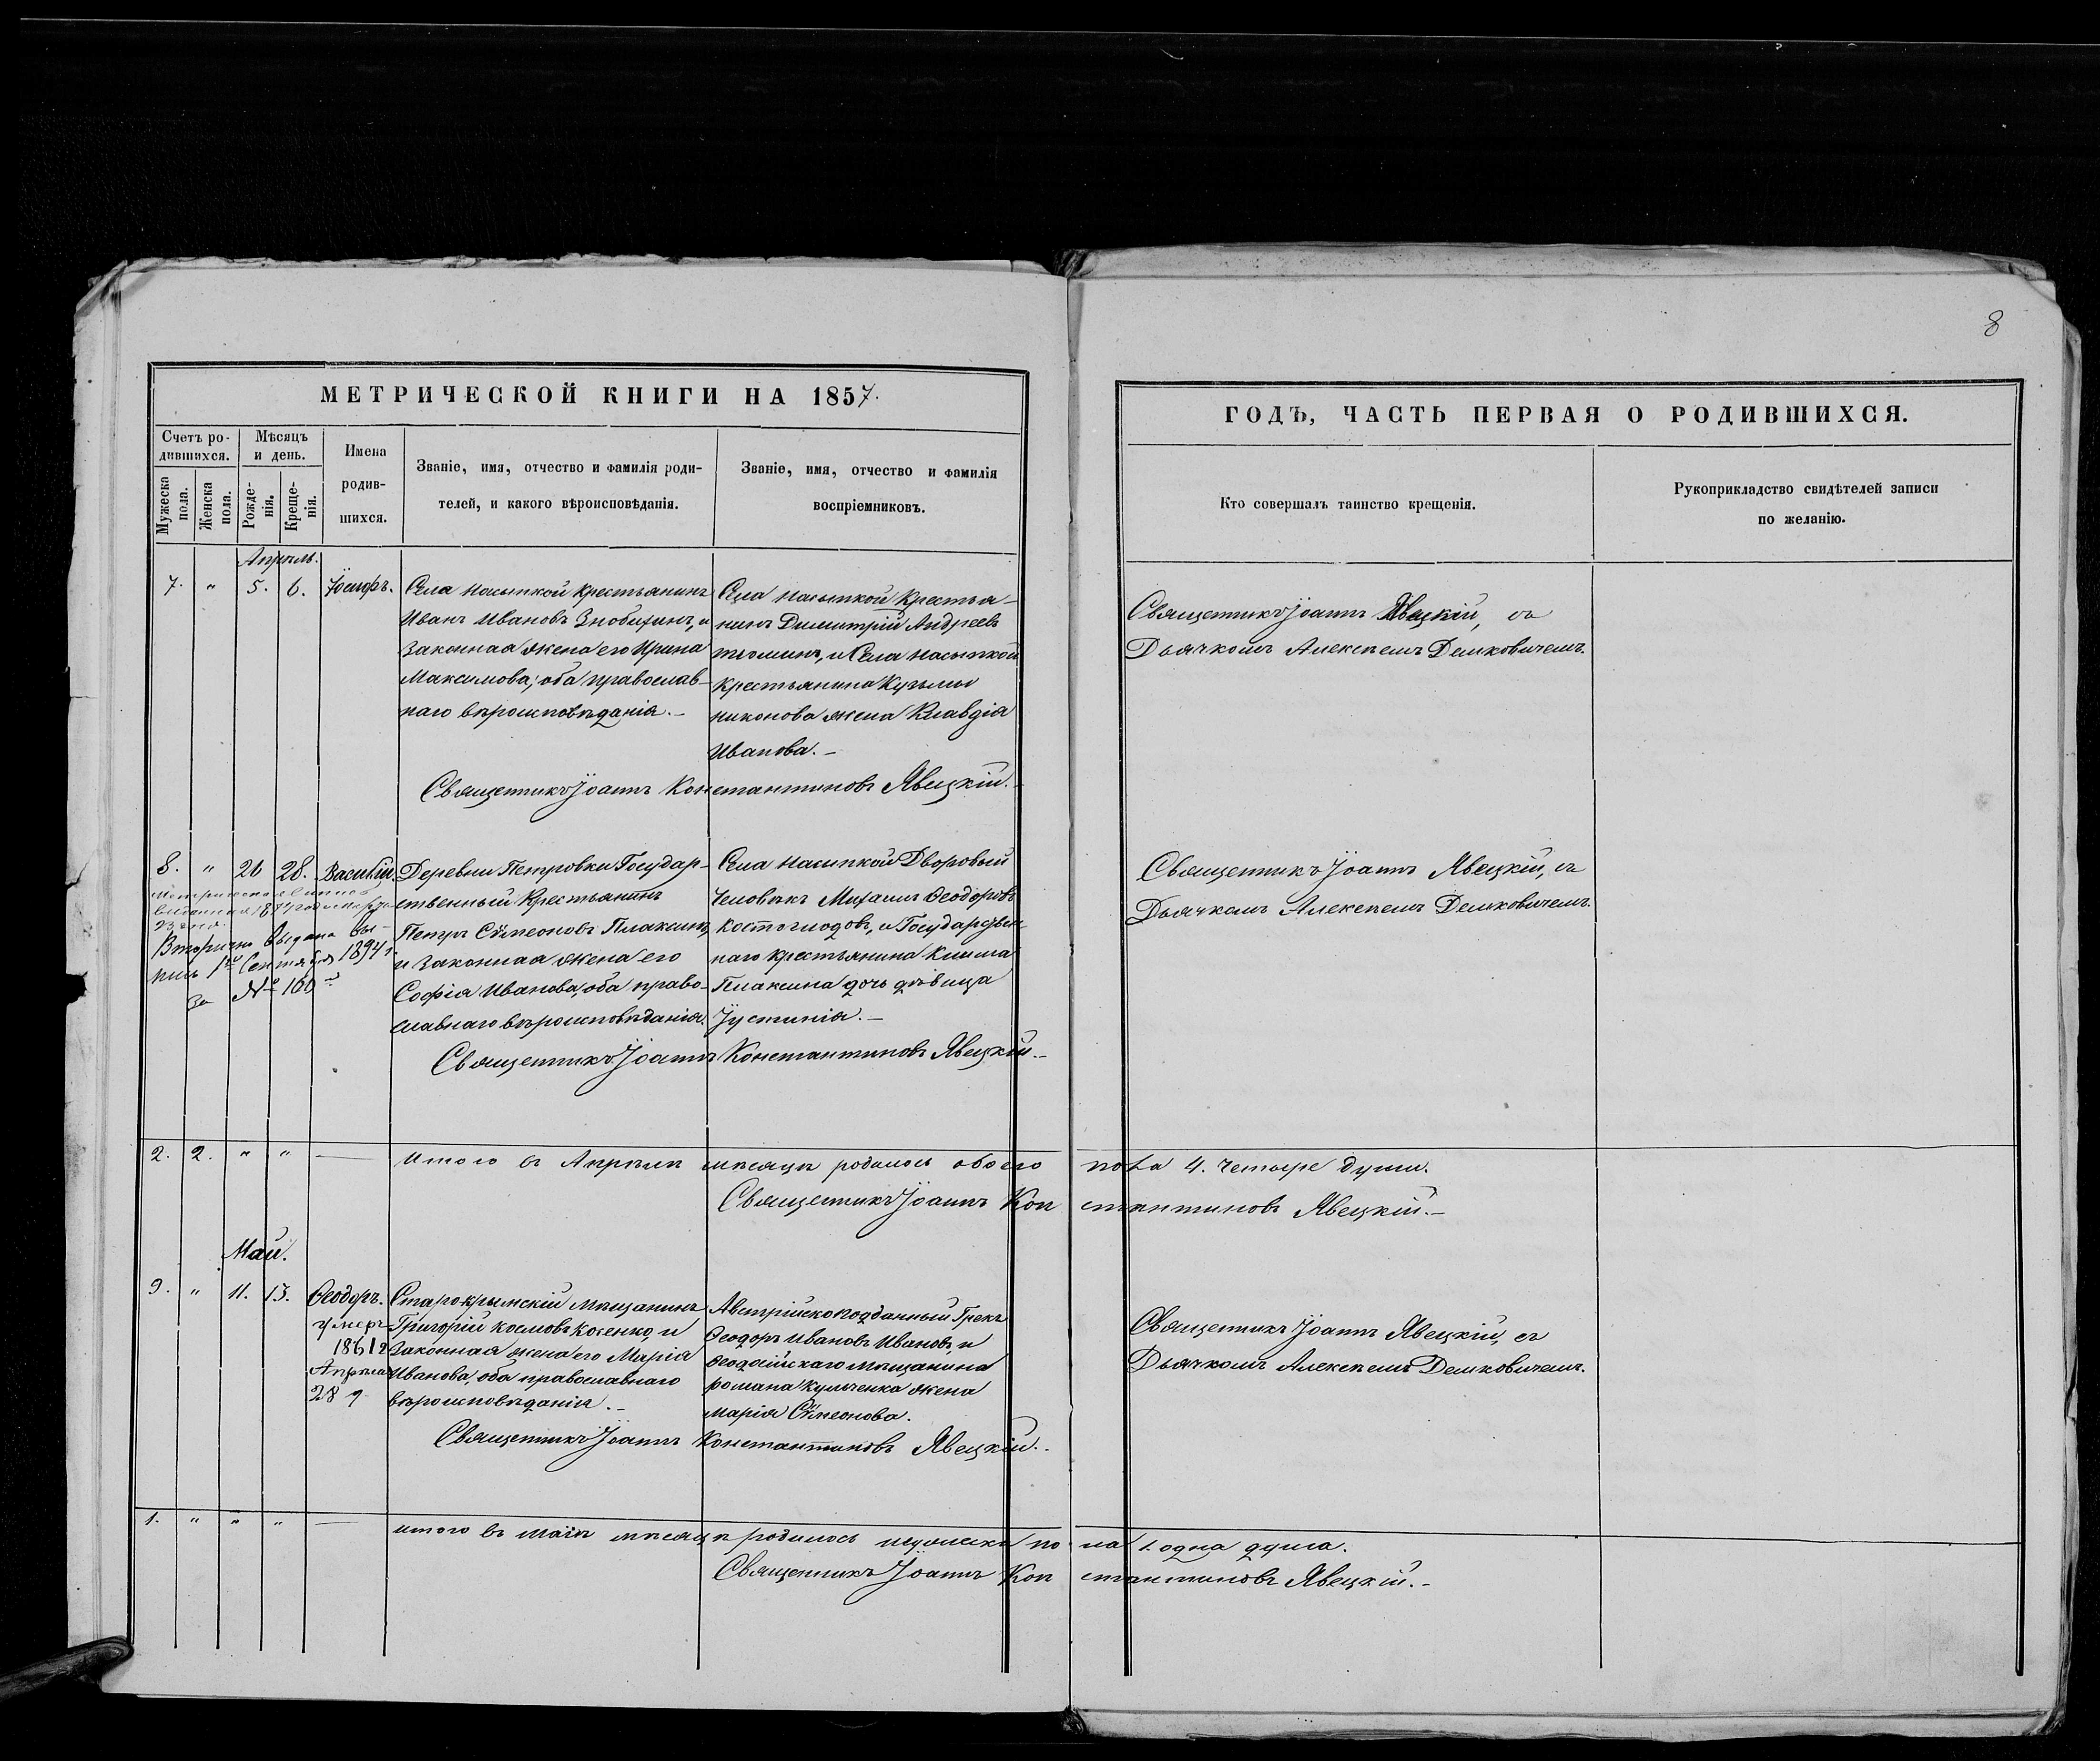 8
МЕТРИЧЕСКОЙ КНИГИ НА 1857.
ГОДЪ, ЧАСТЬ ПЕРВАЯ О РОДИВШИХСЯ.
Счетъ ро-
дившихся.
Мѣсяцъ
и день.
Имена
родив-
шихся.
Званіе, имя, отчество и фамилія роди-
телей, и какого вѣроисповѣданія.
Званіе, имя, отчество и фамилія
воспріемниковъ.
Мужеска
пола.
Женска
пола.
Рожде-
нія.
Креще-
нія.
Кто совершалъ таинство крещенія.
Рукоприкладство свидѣтелей записи
по желанію.
Апрѣль.
7. " 5. 6.
Села Насыпкой крестьянинъ
Иванъ Ивановъ и
законная жена его Ирина
Максимова; оба православ-
наго вѣроисповѣданія.-
Села Насыпкой Крестья-
нинъ Димитрій Андреевъ
и Села Насыпкой
крестьянина Кузьмы
Никонова жена Клавдія
Иванова.-
Священникъ Іоаннъ Явецкій, съ
Дьячкомъ Алексѣемъ Демковичемъ.
Священникъ Іоаннъ Константиновъ Явецкій.-
8. " 26 28. Василій.
Вторично выдана вы-
пись 1го Сентября 1894 г
за № 160
Деревни Петровки Государ-
ственный Крестьянинъ
Петръ Сѵмеоновъ Плаксинъ,
и законная жена его
Софія Иванова, оба право-
славнаго вѣроисповѣданія.
Села Насыпкой Дворовый
Человѣкъ Михаилъ Ѳеодоровъ
и Государствен-
наго крестьянина Клима
Плаксина дочь дѣвица
Іустинія.-
Священникъ Іоаннъ Явецкій, съ
Дьячкомъ Алексѣемъ Демковичемъ.
Священникъ Іоаннъ Константиновъ Явецкій.-
2. 2. " " — Итого въ Апрѣлѣ мѣсяцѣ родилось обоего пола 4. четыре души.
Священникъ Іоаннъ Константиновъ Явецкій.-
Май.
9. " 11. 13. Ѳеодоръ.
умеръ
1861 г
Апрѣля
28
Старокрымскій мѣщанинъ
Григорій Космовъ Косенко, и
законная жена его Марія
Иванова, оба православнаго
вѣроисповѣданія.-
Австрійскоподданный Грекъ
Ѳеодоръ Ивановъ Ивановъ, и
Ѳеодосійскаго мѣщанина
Романа Кульченка жена
Марія Сѵмеонова.
Священникъ Іоаннъ Явецкій, съ
Дьячкомъ Алексѣемъ Демковичемъ.
Священникъ Іоаннъ Константиновъ Явецкій.-
1. " " " — Итого въ Маіѣ мѣсяцѣ родилось мужеска пола 1. одна душа.
Священникъ Іоаннъ Константиновъ Явецкій.-